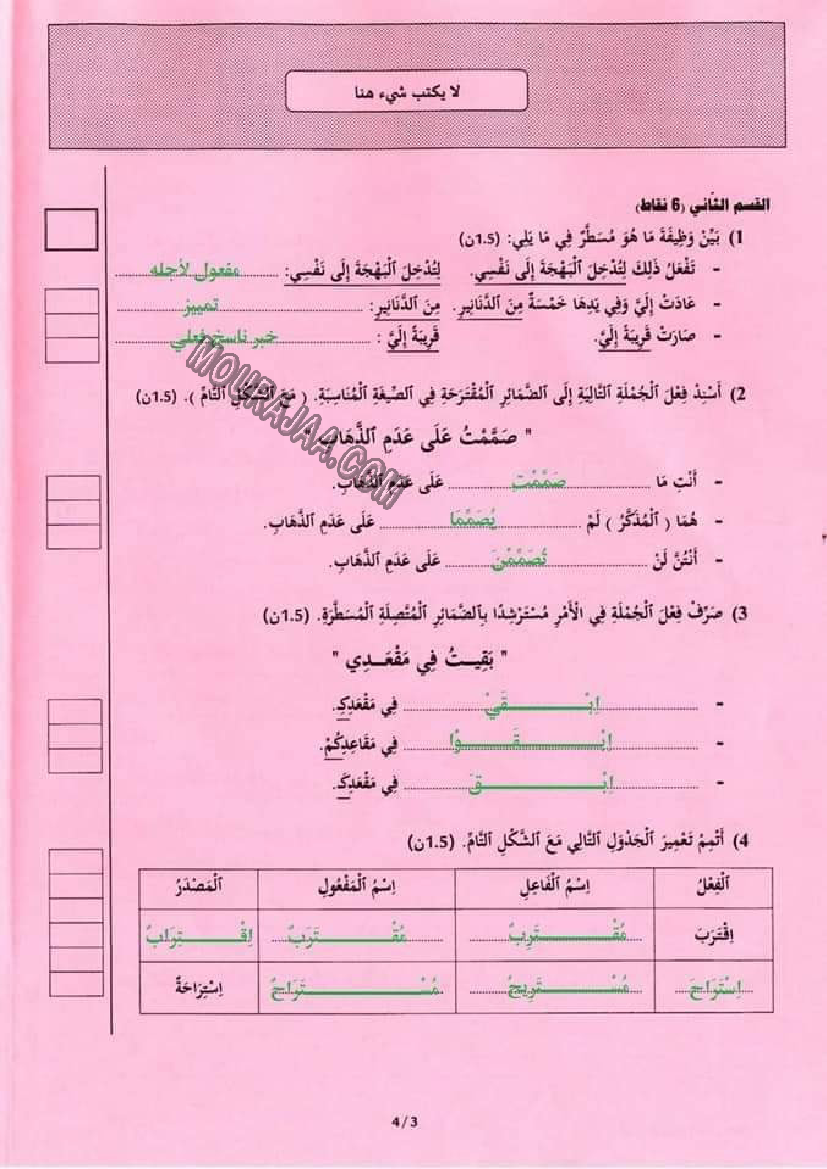 لا يكتب شيء هنا
القسم الثاني (6 نقاط)
1) بَيِّنْ وَظِيفَةَ مَا هُوَ مُسَطَّرٌ فِي مَا يَلِي: (1.5ن)
- تَفْعَلُ ذَلِكَ لِتُدْخِلَ ٱلْبَهْجَةَ إِلَى نَفْسِي. لِتُدْخِلَ ٱلْبَهْجَةَ إِلَى نَفْسِي: مفعول لأجله
- عَادَتْ إِلَيَّ وَفِي يَدِهَا خَمْسَةٌ مِنَ ٱلدَّنَانِيرِ. مِنَ ٱلدَّنَانِيرِ: تمييز
- صَارَتْ قَرِيبَةً إِلَيَّ. قَرِيبَةً إِلَيَّ : خبر ناسخ فعلي
2) أَسْنِدْ فِعْلَ ٱلْجُمْلَةِ ٱلتَّالِيَةِ إِلَى ٱلضَّمَائِرِ ٱلْمُقْتَرَحَةِ فِي ٱلصِّيغَةِ ٱلْمُنَاسِبَةِ. ( مَعَ ٱلشَّكْلِ ٱلتَّامِّ ). (1.5ن)
" صَمَّمْتُ عَلَى عَدَمِ ٱلذَّهَابِ "
- أَنْتِ مَا صَمَّمْتِ عَلَى عَدَمِ ٱلذَّهَابِ.
- هُمَا ( ٱلْمُذَكَّرُ ) لَمْ يُصَمِّمَا عَلَى عَدَمِ ٱلذَّهَابِ.
- أَنْتُنَّ لَنْ تُصَمِّمْنَ عَلَى عَدَمِ ٱلذَّهَابِ.
3) صَرِّفْ فِعْلَ ٱلْجُمْلَةِ فِي ٱلْأَمْرِ مُسْتَرْشِدًا بِٱلضَّمَائِرِ ٱلْمُتَّصِلَةِ ٱلْمُسَطَّرَةِ. (1.5ن)
" بَقِيتُ فِي مَقْعَدِي "
- اِبْقَيْ فِي مَقْعَدِكِ.
- اِبْقَوْا فِي مَقَاعِدِكُمْ.
- اِبْقَ فِي مَقْعَدِكَ.
4) أُتَمِّمُ تَعْمِيرَ ٱلْجَدْوَلِ ٱلتَّالِي مَعَ ٱلشَّكْلِ ٱلتَّامِّ. (1.5ن)
ٱلْفِعْلُ اِسْمُ ٱلْفَاعِلِ اِسْمُ ٱلْمَفْعُولِ ٱلْمَصْدَرُ
اِقْتَرَبَ مُقْتَرِبٌ مُقْتَرَبٌ اِقْتِرَابٌ
اِسْتَرَاحَ مُسْتَرِيحٌ مُسْتَرَاحٌ اِسْتِرَاحَةٌ
4/3
MOURAJAA.COM